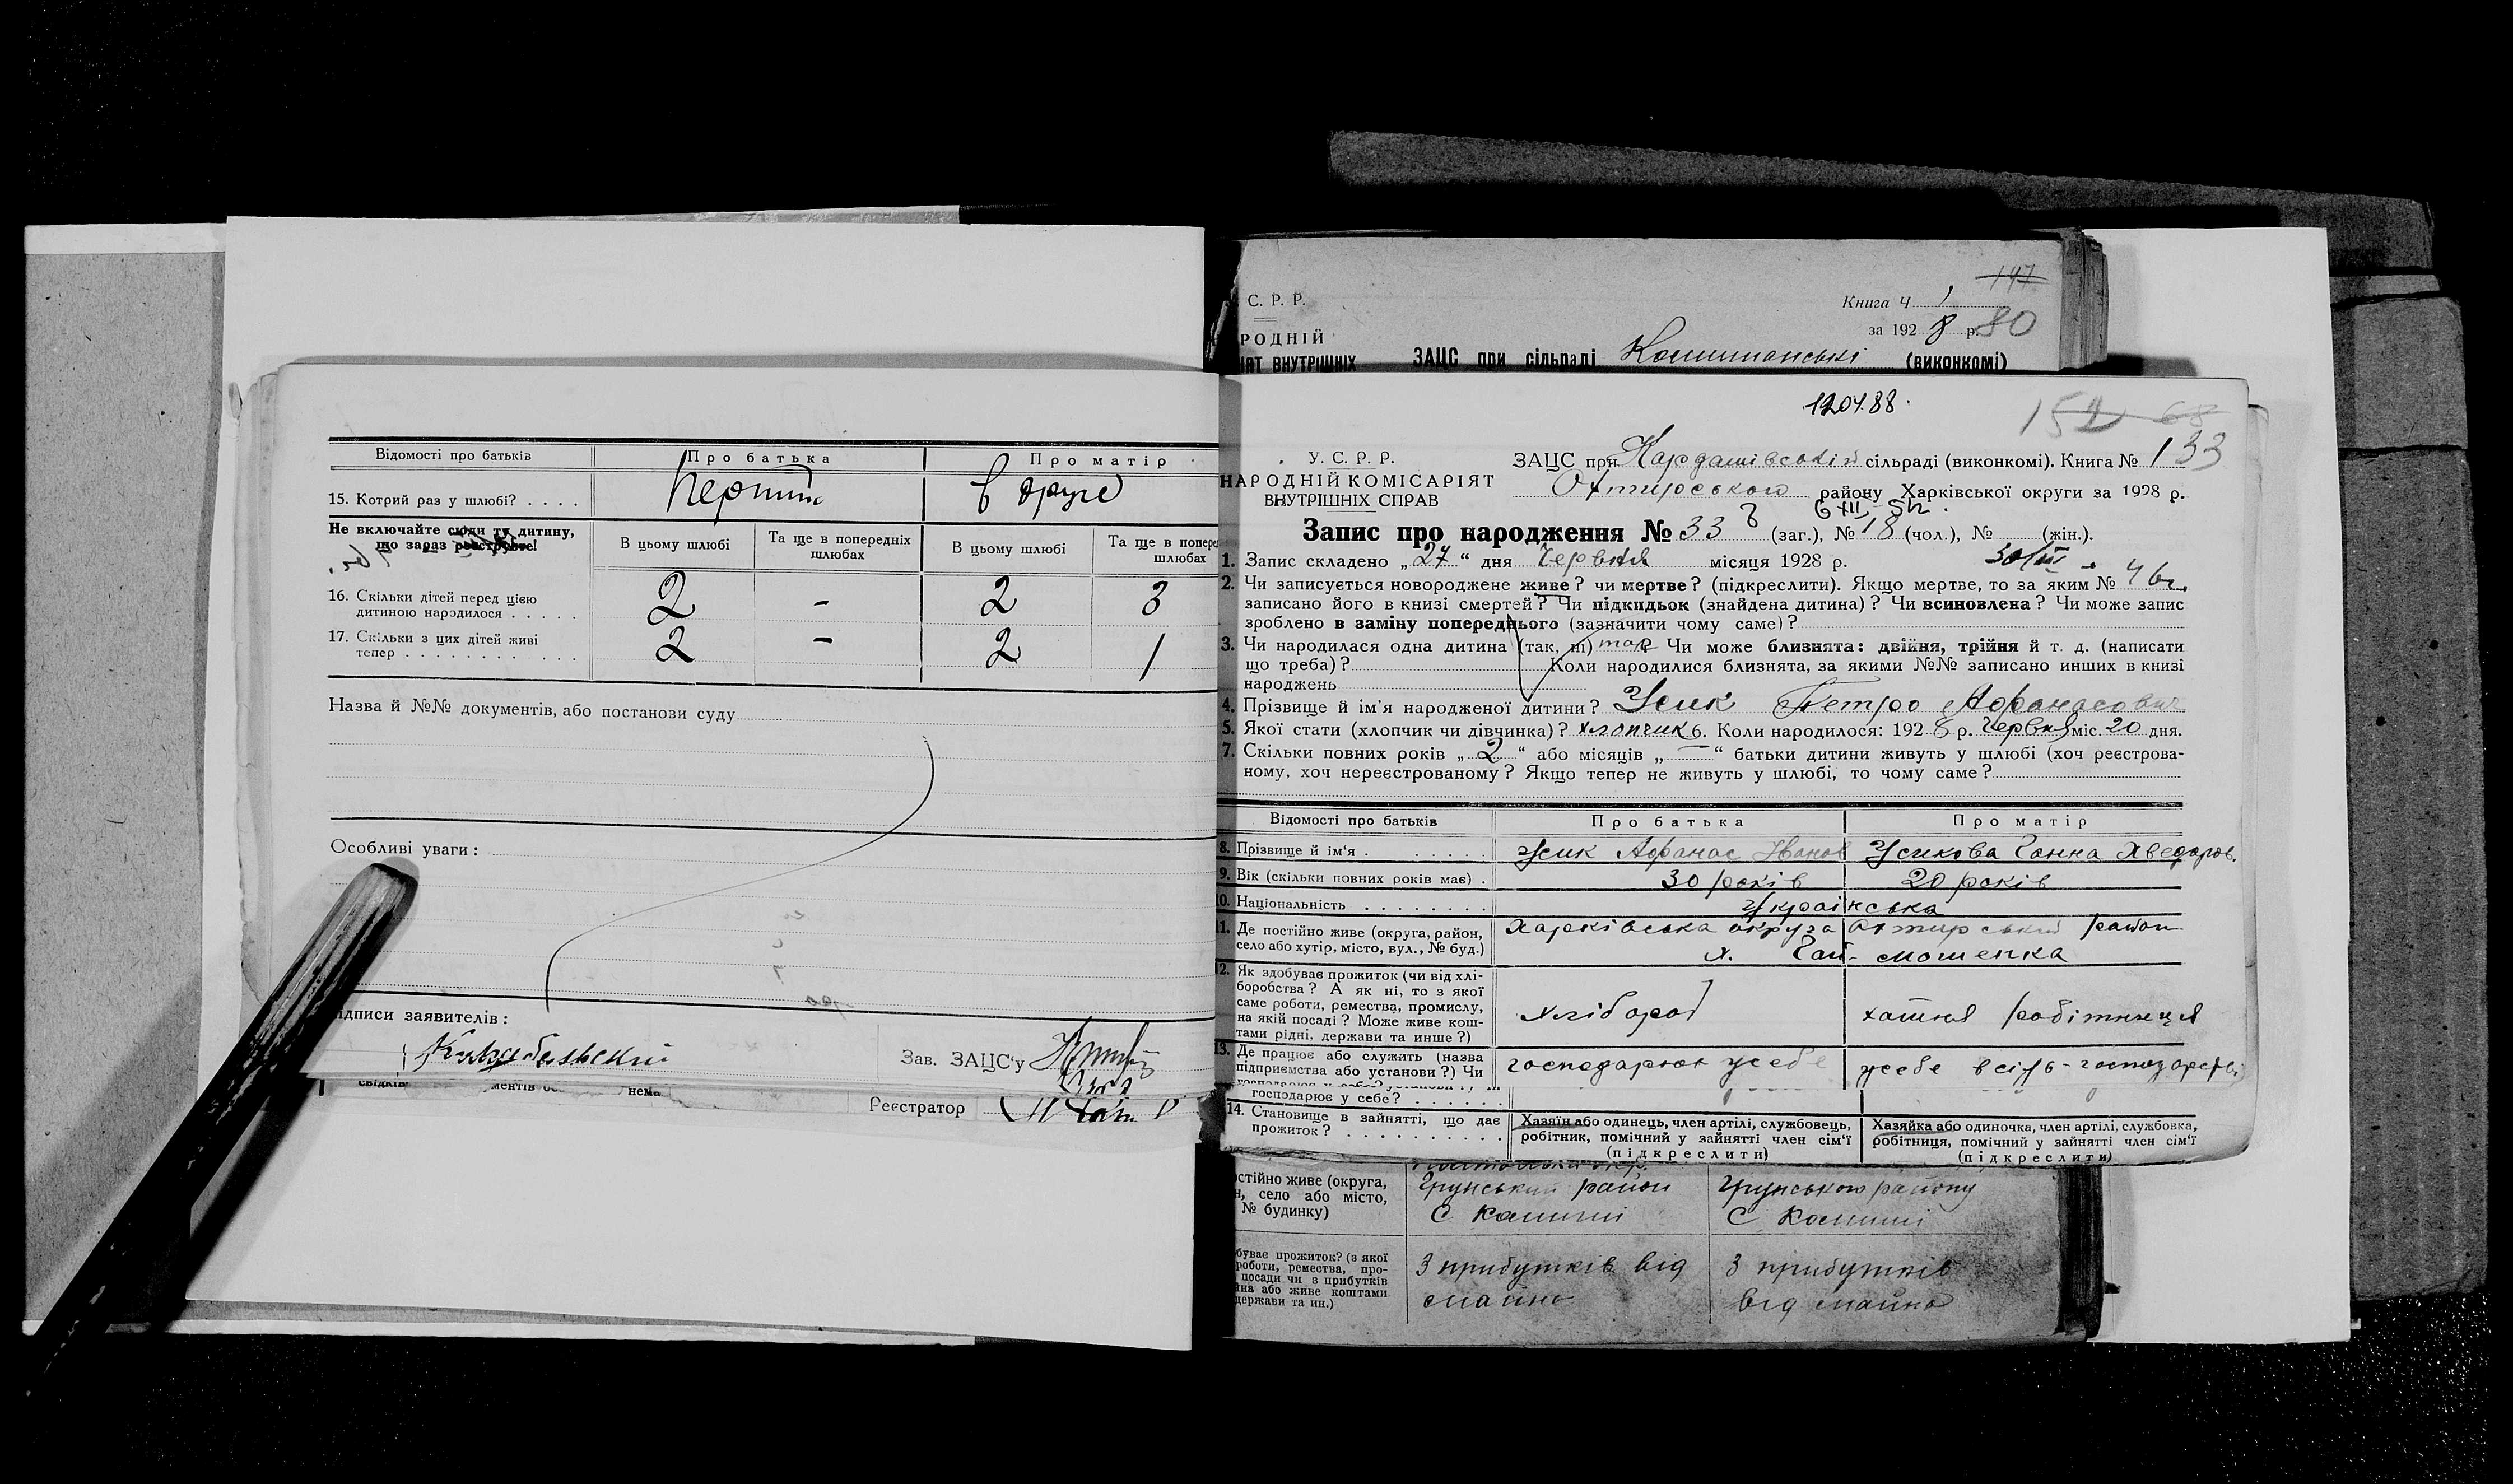 Відомості про батьків Про батька Про матір
15. Котрий раз у шлюбі? . . . . Перший в друге
Не включайте сюди ту дитину,
що зараз реєструєте!
В цьому шлюбі Та ще в попередніх шлюбах В цьому шлюбі Та ще в попере шлюбах
16. Скільки дітей перед цією
дитиною народилося . . . . . 2 - 2 3
17. Скільки з цих дітей живі
тепер . . . . . . . . . . . 2 - 2 1
Назва й №№ документів, або постанови суду
Особливі уваги:
ідписи заявителів:
Зав. ЗАЦС'у
Реєстратор
С. Р. Р.
147
Книга Ч 1
за 1928 р. 80
РОДНІЙ
ІЯТ ВНУТРІШНІХ ЗАЦС при сільраді (виконкомі)
1204.88.
152 68
У. С. Р. Р.
НАРОДНІЙ КОМІСАРІЯТ
ВНУТРІШНІХ СПРАВ
ЗАЦС при Кардашівській сільраді (виконкомі). Книга № 133
Охтирського району Харківської округи за 1928 р.
Запис про народження № 33 (заг.), № 18 (чол.), № (жін.).
1. Запис складено „27“ дня Червня місяця 1928 р.
2. Чи записується новороджене живе? чи мертве? (підкреслити). Якщо мертве, то за яким №
записано його в книзі смертей? Чи підкидьок (знайдена дитина)? Чи всиновлена? Чи може запис
зроблено в заміну попереднього (зазначити чому саме)?
3. Чи народилася одна дитина (так, ні) так Чи може близнята: двійня, трійня й т. д. (написати
що треба)? Коли народилися близнята, за якими №№ записано инших в книзі
народжень
4. Прізвище й ім'я народженої дитини? Усик Петро Афанасович
5. Якої стати (хлопчик чи дівчинка)? хлопчик 6. Коли народилося: 1928 р. Червня міс. 20 дня.
7. Скільки повних років „2“ або місяців „—“ батьки дитини живуть у шлюбі (хоч реєстрова-
ному, хоч нереєстрованому? Якщо тепер не живуть у шлюбі, то чому саме?
Відомості про батьків Про батька Про матір
8. Прізвище й ім'я . . . . . . Усик Афанас Іванов Усикова Ганна Хведоров.
9. Вік (скільки повних років має) . 30 років 20 років
10. Національність . . . . . . . . Українська
11. Де постійно живе (округа, район,
село або хутір, місто, вул., № буд.)
Харківська округа Охтирський район
х. Гай-мошенка
12. Як здобуває прожиток (чи від хлі-
боробства? А як ні, то з якої
саме роботи, ремества, промислу,
на якій посаді? Може живе кош-
тами рідні, держави та инше?)
хлібороб хатня робітниця
13. Де працює або служить (назва
підприємства або установи?) Чи
господарює у себе? . . . . . .
господарює у себе у себе
14. Становище в зайнятті, що дає
прожиток? . . . . . . . . . .
Хазяїн або одинець, член артілі, службовець,
робітник, помічний у зайнятті член сім'ї
(підкреслити)
Хазяйка або одиночка, член артілі, службовка,
робітниця, помічний у зайнятті член сім'ї
(підкреслити)
остійно живе (округа,
н, село або місто,
№ будинку)
Грунський район Грунського району
С Комиші С Комиші
буває прожиток? (з якої
роботи, ремества, про-
посади чи з прибутків
йна або живе коштами
держави та ин.)
З прибутків від
майна
З прибутків
від майна